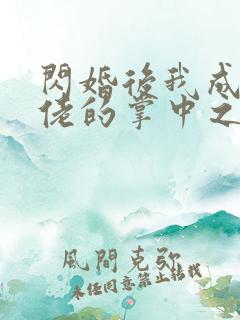 閃婚後我成
佬的掌中之
風間克弥
未经同意禁止转载